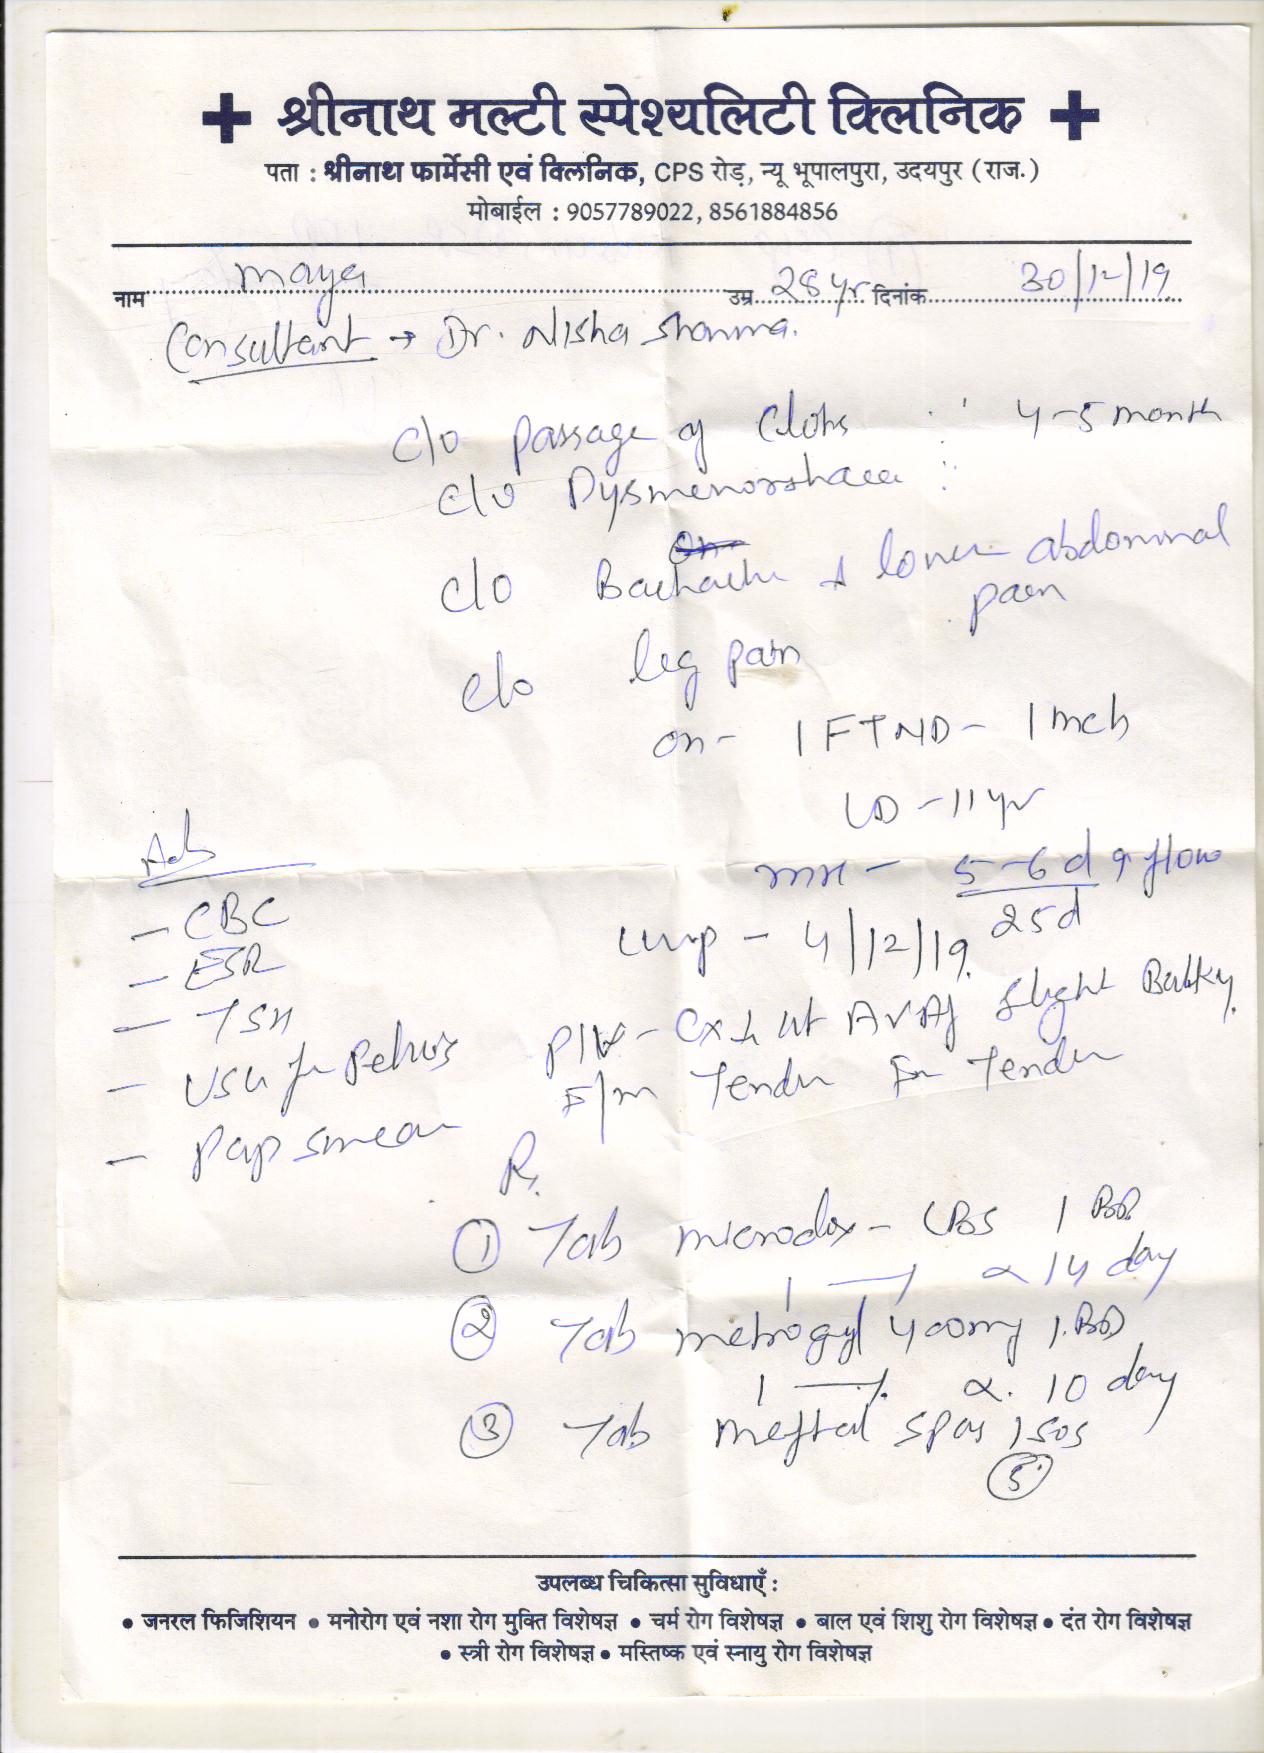 श्रीनाथ मल्टी स्पेश्यलिटी क्लिनिक
पता : श्रीनाथ फार्मेसी एवं क्लिनिक, CPS रोड़, न्यू भूपालपुरा, उदयपुर (राज.)
मोबाईल : 9057789022, 8561884856
नाम Maya उम्र 28 yr दिनांक 30/12/19
Consultant → Dr. Nisha Sharma.
c/o passage of clots 4-5 month
c/o Dysmenorrhaea
c/o Backache + lower abdominal pain
c/o leg pain
OH- 1 FTND - 1 mch
LD - 11 yr
MH - 5-6 d flow
25d
LMP - 4/12/19
P/V - Cx ut AVAF slight Bulky.
F/M Tender Fx Tender
Adv
- CBC
- ESR
- TSH
- USG for Pelvis
- Pap smear
Rx
① Tab Microdox - LBX 1 BD
1 — 1 x 14 day
② Tab Metrogyl 400mg 1 BD
1 — 1 x 10 day
③ Tab Meftal spas 1 SOS
⑤
उपलब्ध चिकित्सा सुविधाएँ :
• जनरल फिजिशियन • मनोरोग एवं नशा रोग मुक्ति विशेषज्ञ • चर्म रोग विशेषज्ञ • बाल एवं शिशु रोग विशेषज्ञ • दंत रोग विशेषज्ञ
• स्त्री रोग विशेषज्ञ • मस्तिष्क एवं स्नायु रोग विशेषज्ञ